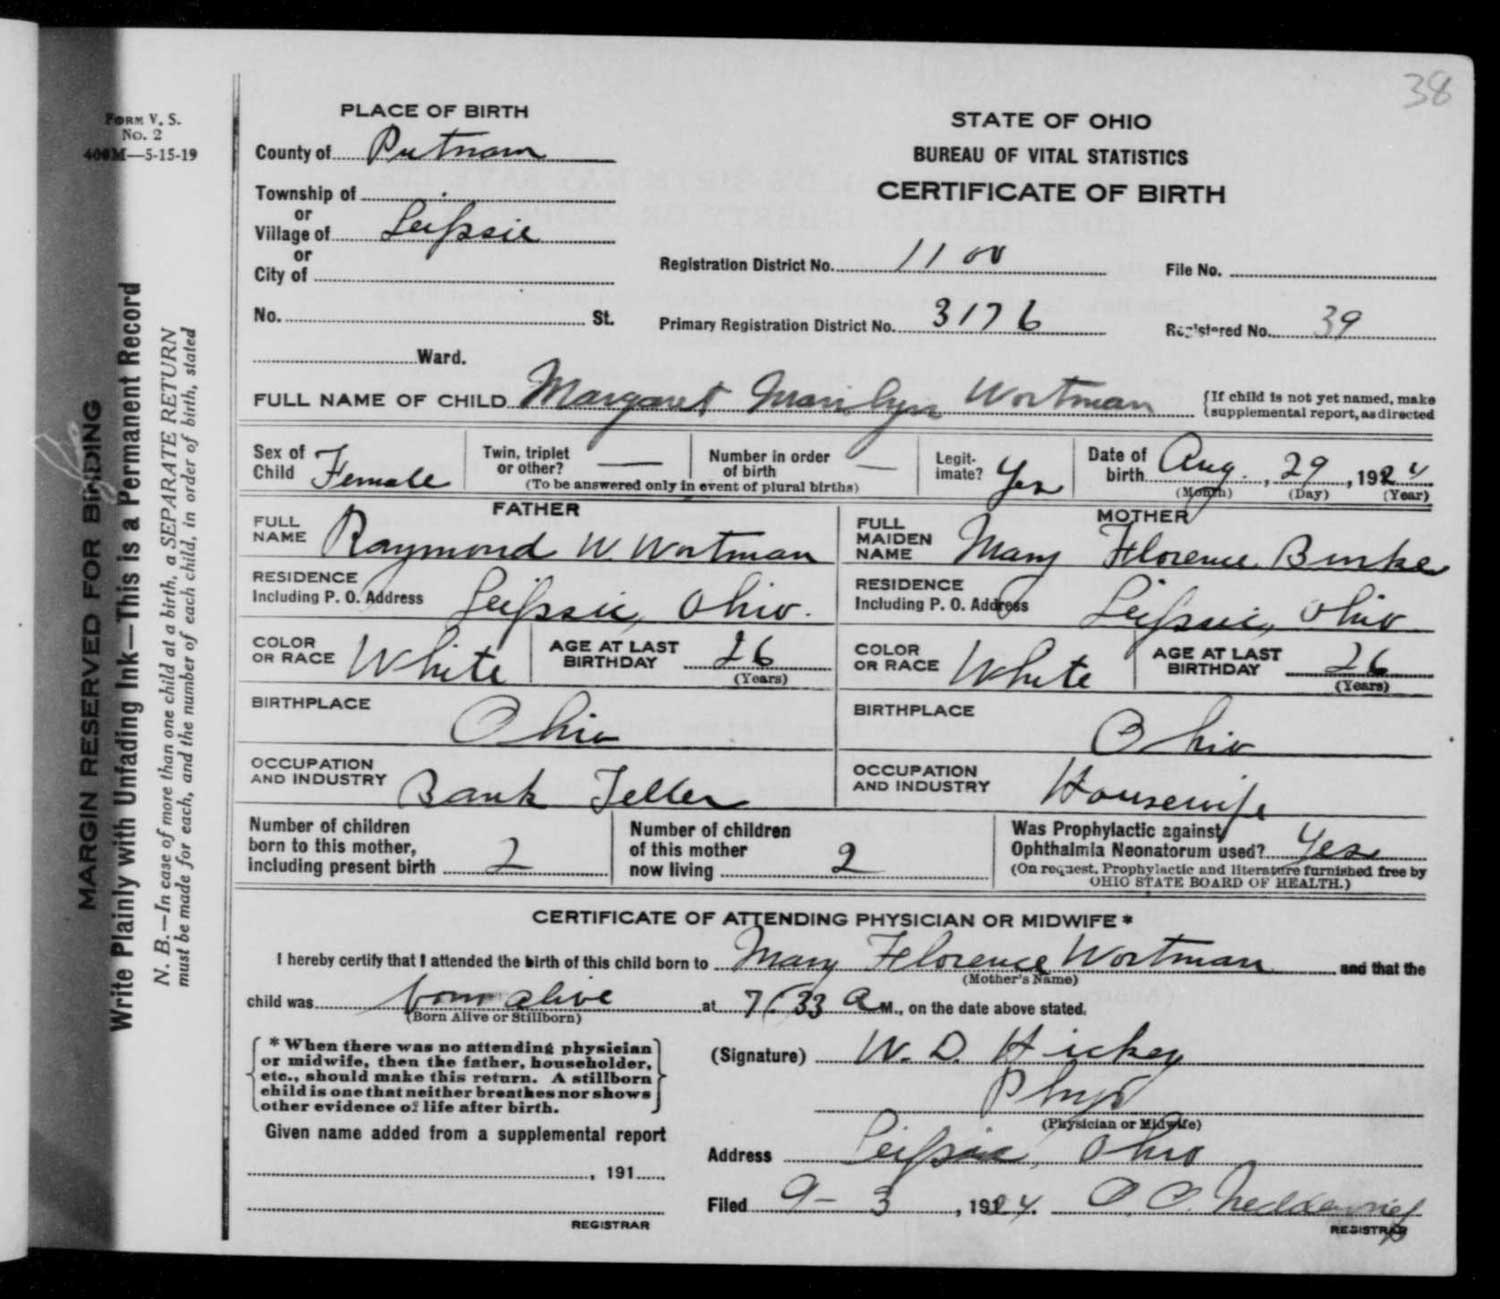 38
FORM V. S.
No. 2
400M—5-15-19
MARGIN RESERVED FOR BINDING
Write Plainly with Unfading Ink—This is a Permanent Record
N. B.—In case of more than one child at a birth, a SEPARATE RETURN
must be made for each, and the number of each child, in order of birth, stated
PLACE OF BIRTH
County of Putnam
Township of
or
Village of Leipsic
or
City of
No. St.
Ward.
STATE OF OHIO
BUREAU OF VITAL STATISTICS
CERTIFICATE OF BIRTH
Registration District No. 1100 File No.
Primary Registration District No. 3176 Registered No. 39
FULL NAME OF CHILD Margaret Marilyn Wortman {If child is not yet named, make
supplemental report, as directed
Sex of Child Female
Twin, triplet or other? —
Number in order of birth —
(To be answered only in event of plural births)
Legitimate? Yes
Date of birth Aug. 29, 1924
(Month) (Day) (Year)
FATHER
FULL NAME Raymond W. Wortman
RESIDENCE
Including P. O. Address Leipsic, Ohio.
COLOR OR RACE White
AGE AT LAST BIRTHDAY 26
(Years)
BIRTHPLACE Ohio
OCCUPATION AND INDUSTRY Bank Teller
MOTHER
FULL MAIDEN NAME Mary Florence Burke
RESIDENCE
Including P. O. Address Leipsic, Ohio
COLOR OR RACE White
AGE AT LAST BIRTHDAY 26
(Years)
BIRTHPLACE Ohio
OCCUPATION AND INDUSTRY Housewife
Number of children
born to this mother,
including present birth 2
Number of children
of this mother
now living 2
Was Prophylactic against
Ophthalmia Neonatorum used? Yes
(On request, Prophylactic and literature furnished free by
OHIO STATE BOARD OF HEALTH.)
CERTIFICATE OF ATTENDING PHYSICIAN OR MIDWIFE*
I hereby certify that I attended the birth of this child born to Mary Florence Wortman and that the
(Mother's Name)
child was born alive at 7:33 A M., on the date above stated.
(Born Alive or Stillborn)
* When there was no attending physician
or midwife, then the father, householder,
etc., should make this return. A stillborn
child is one that neither breathes nor shows
other evidence of life after birth.
(Signature) W. D. Hickey
Phys
(Physician or Midwife)
Given name added from a supplemental report
, 191
REGISTRAR
Address Leipsic, Ohio
Filed 9-3, 1924.
REGISTRAR